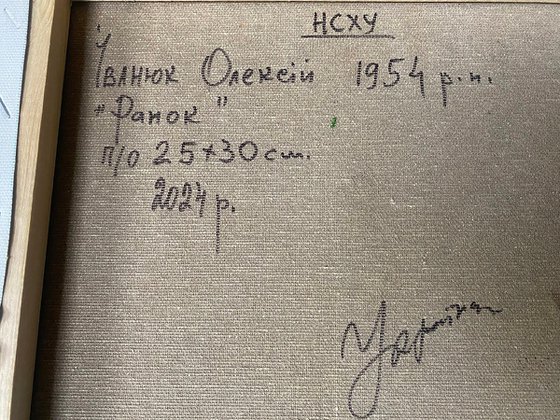 НСХУ
Іванюк Олексій 1954 р.н.
"Ранок"
п/о 25×30 см.
2024 р.